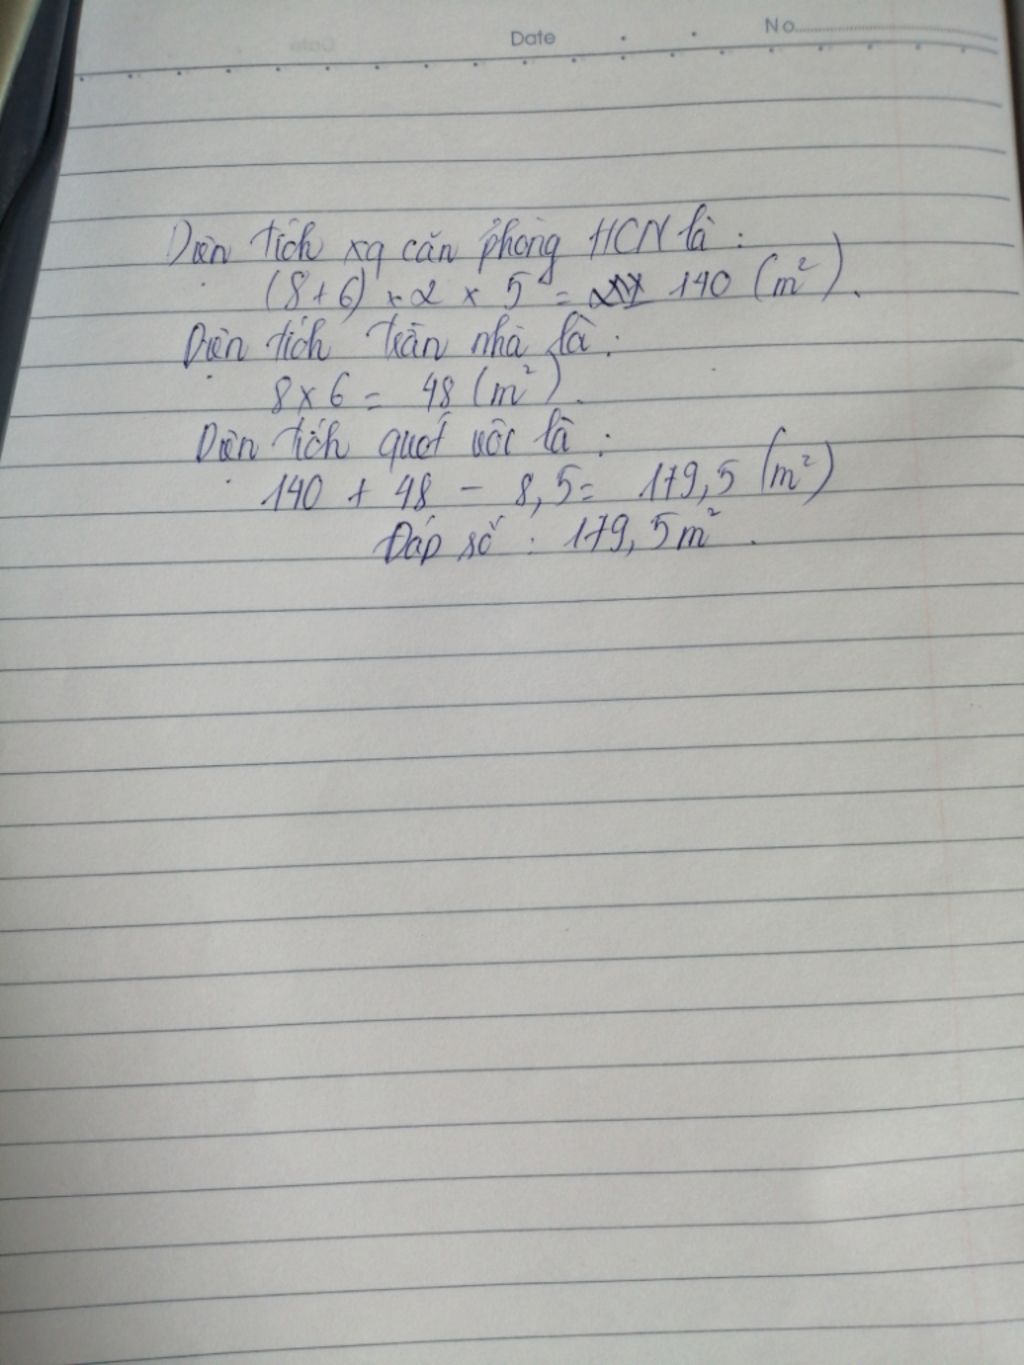 Date No
Diện tích xq căn phòng HCN là :
(8+6) x 2 x 5 = 140 (m²).
Diện tích trần nhà là :
8 x 6 = 48 (m²).
Diện tích quét vôi là :
140 + 48 - 8,5 = 179,5 (m²)
Đáp số : 179,5 m².